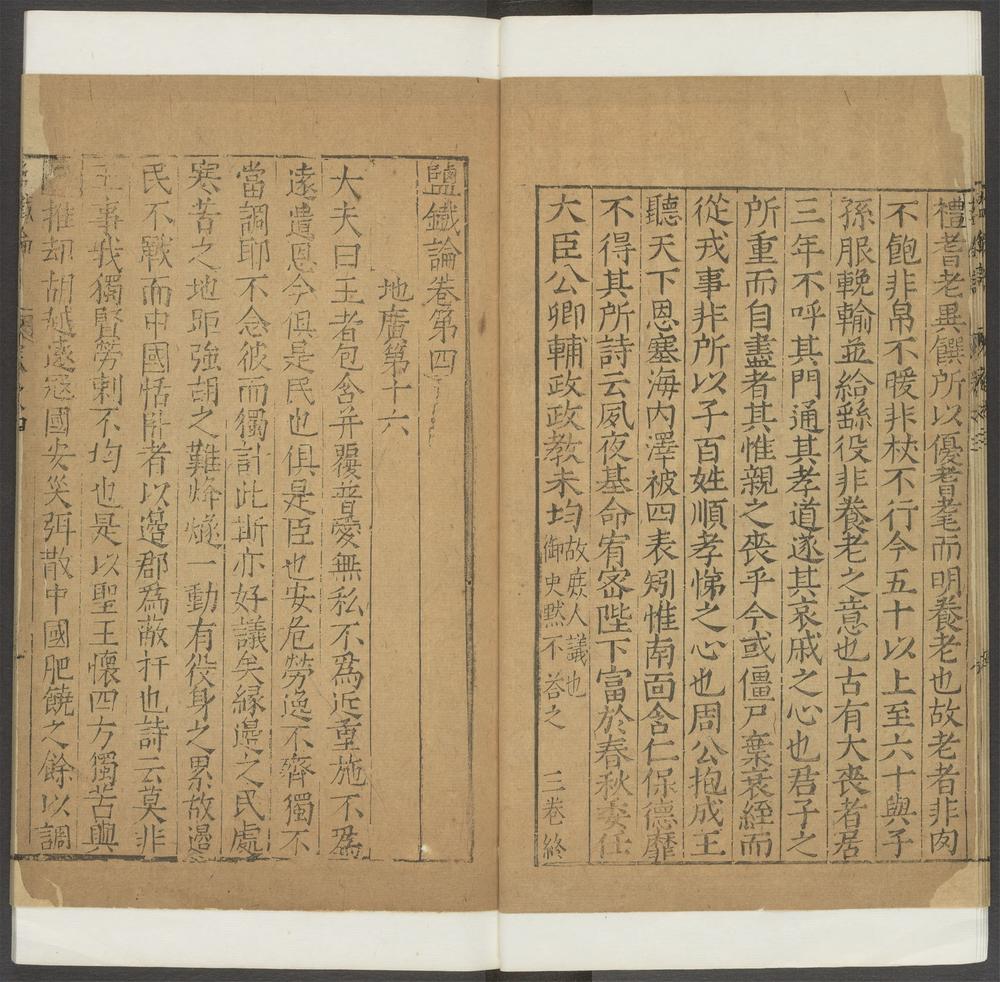 禮耆老異饌所以優耆耄而明養老也故老者非肉
不飽非帛不暖非杖不行今五十以上至六十與子
孫服輓輸並給繇役非養老之意也古有大喪者居
三年不呼其門通其孝道遂其哀戚之心也君子之
所重而自盡者其惟親之喪乎今或僵尸棄衰絰而
從戎事非所以子百姓順孝悌之心也周公抱成王
聽天下恩塞海內澤被四表矧惟南面含仁保德靡
不得其所詩云夙夜基命宥密陛下富於春秋委任
大臣公卿輔政政教未均故庶人議也
御史默不荅之 三卷終
鹽鐵論卷第四
地廣第十六
大夫曰王者包含并覆普愛無私不為近重施不為
遠遺恩今俱是民也俱是臣也安危勞逸不齊獨不
當調耶不念彼而獨計此斯亦好議矣緣邊之民處
寒苦之地距強胡之難烽燧一動有沒身之累故邊
民百戰而中國恬卧者以邊郡為蔽扞也詩云莫非
王事我獨賢勞刺不均也是以聖王懷四方獨苦興
推却胡越遠寇國安災弭散中國肥饒之餘以調